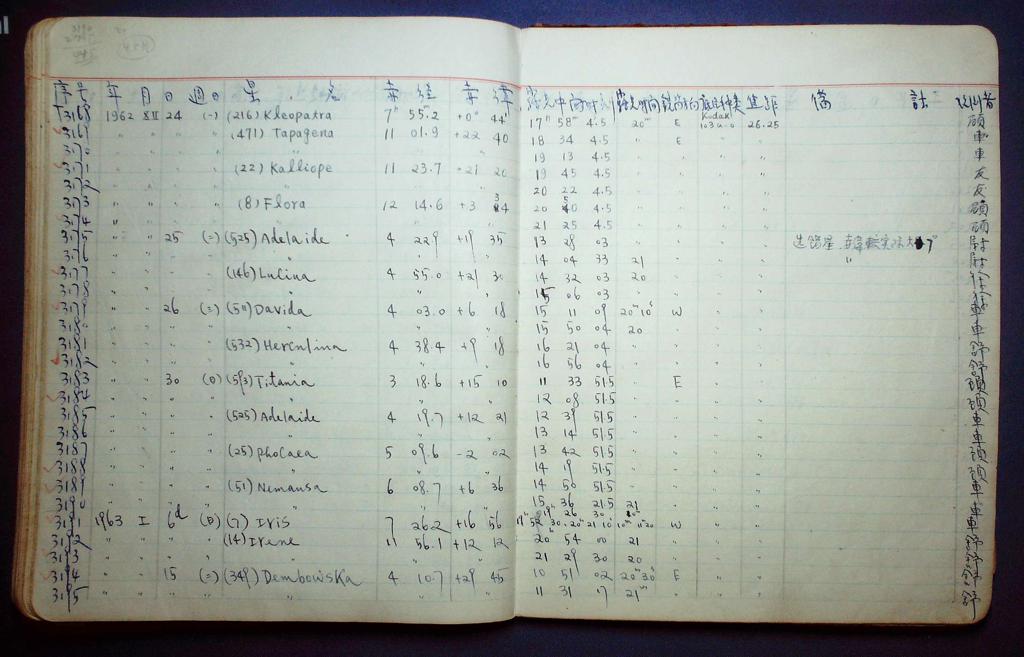 序号 年 月 日 週日 星 名 赤 经 赤 纬 露光中间时刻 露光时间 镜筒方向 底片种类 焦距 备 註 观测者
3168 1962 XII 24 (一) (216) Kleopatra 7h 55.2 +0° 44' 17h 58m 4.5 20m E Kodak 103a-o 26.25
3169 " " " " (471) Tapagena 11 01.9 +22 40 18 34 4.5 " E " " 车
3170 " " " " " " " 19 13 4.5 " " " 车
3171 " " " " (22) Kalliope 11 23.7 +21 20 19 45 4.5 " " " 友
3172 " " " " " 20 22 4.5 " " " 友
3173 " " " " (8) Flora 12 14.6 +3 20 40 4.5 " " "
3174 " " " " " 21 25 4.5 " " "
3175 " " 25 (二) (525) Adelaide 4 22.9 +19 35 13 28 03 " " "
3176 " " " " " 14 04 33 21 " "
3177 " " " " (146) Lucina 4 55.0 +21 30 14 32 03 20 " "
3178 " " " " " 15 06 03 " " "
3179 " " 26 (三) (511) Davida 4 03.0 +6 18 15 11 09 20m 10s W " " 车
3180 " " " " " 15 50 04 20 " " 车
3181 " " " " (532) Herculina 4 38.4 +9 18 16 21 04 " " " 舒
3182 " " " " " 16 56 04 " " " 舒
3183 " " 30 (日) (593) Titania 3 18.6 +15 10 11 33 51.5 E "
3184 " " " " " 12 08 51.5 " " "
3185 " " " " (525) Adelaide 4 19.7 +12 21 12 39 51.5 " " " 车
3186 " " " " " 13 14 51.5 " " " 车
3187 " " " " (25) Phocaea 5 09.6 -2 02 13 42 51.5 " " "
3188 " " " " " 14 19 51.5 " " "
3189 " " " " (51) Nemausa 6 08.7 +6 36 14 50 51.5 " " " 车
3190 " " " " " 15 36 21.5 21 " " 车
3191 1963 I 6d (日) (7) Iris 7 26.2 +16 56 W " 车
3192 " " " " (14) Irene 11 56.1 +12 12 20 54 00 21 " " 舒
3193 " " " " " 21 29 30 20 " " 舒
3194 " " 15 (二) (349) Dembowska 4 10.7 +29 45 10 51 02 20m 30s E " " 舒
3195 " " " " " 11 31 17 21m " " 舒